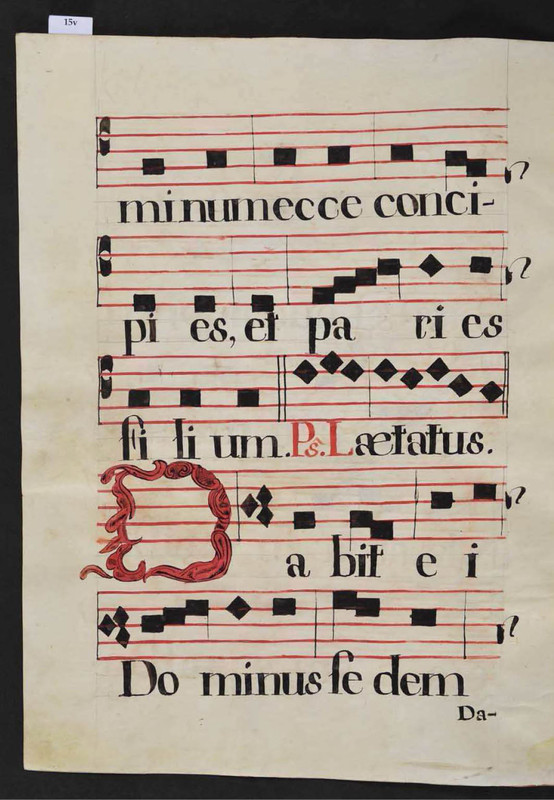 15v
minumecce conci-
pi es, et pa ri es
fi li um. Ps. Lætatus.
D a bit e i
Do minus se dem
Da-